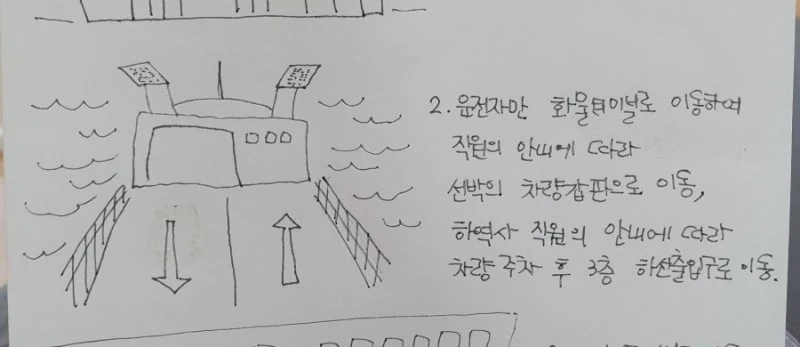 2. 운전자만 화물터미널로 이동하여
직원의 안내에 따라
선박의 차량갑판으로 이동,
하역사 직원의 안내에 따라
차량 주차 후 3층 하선출입구로 이동.